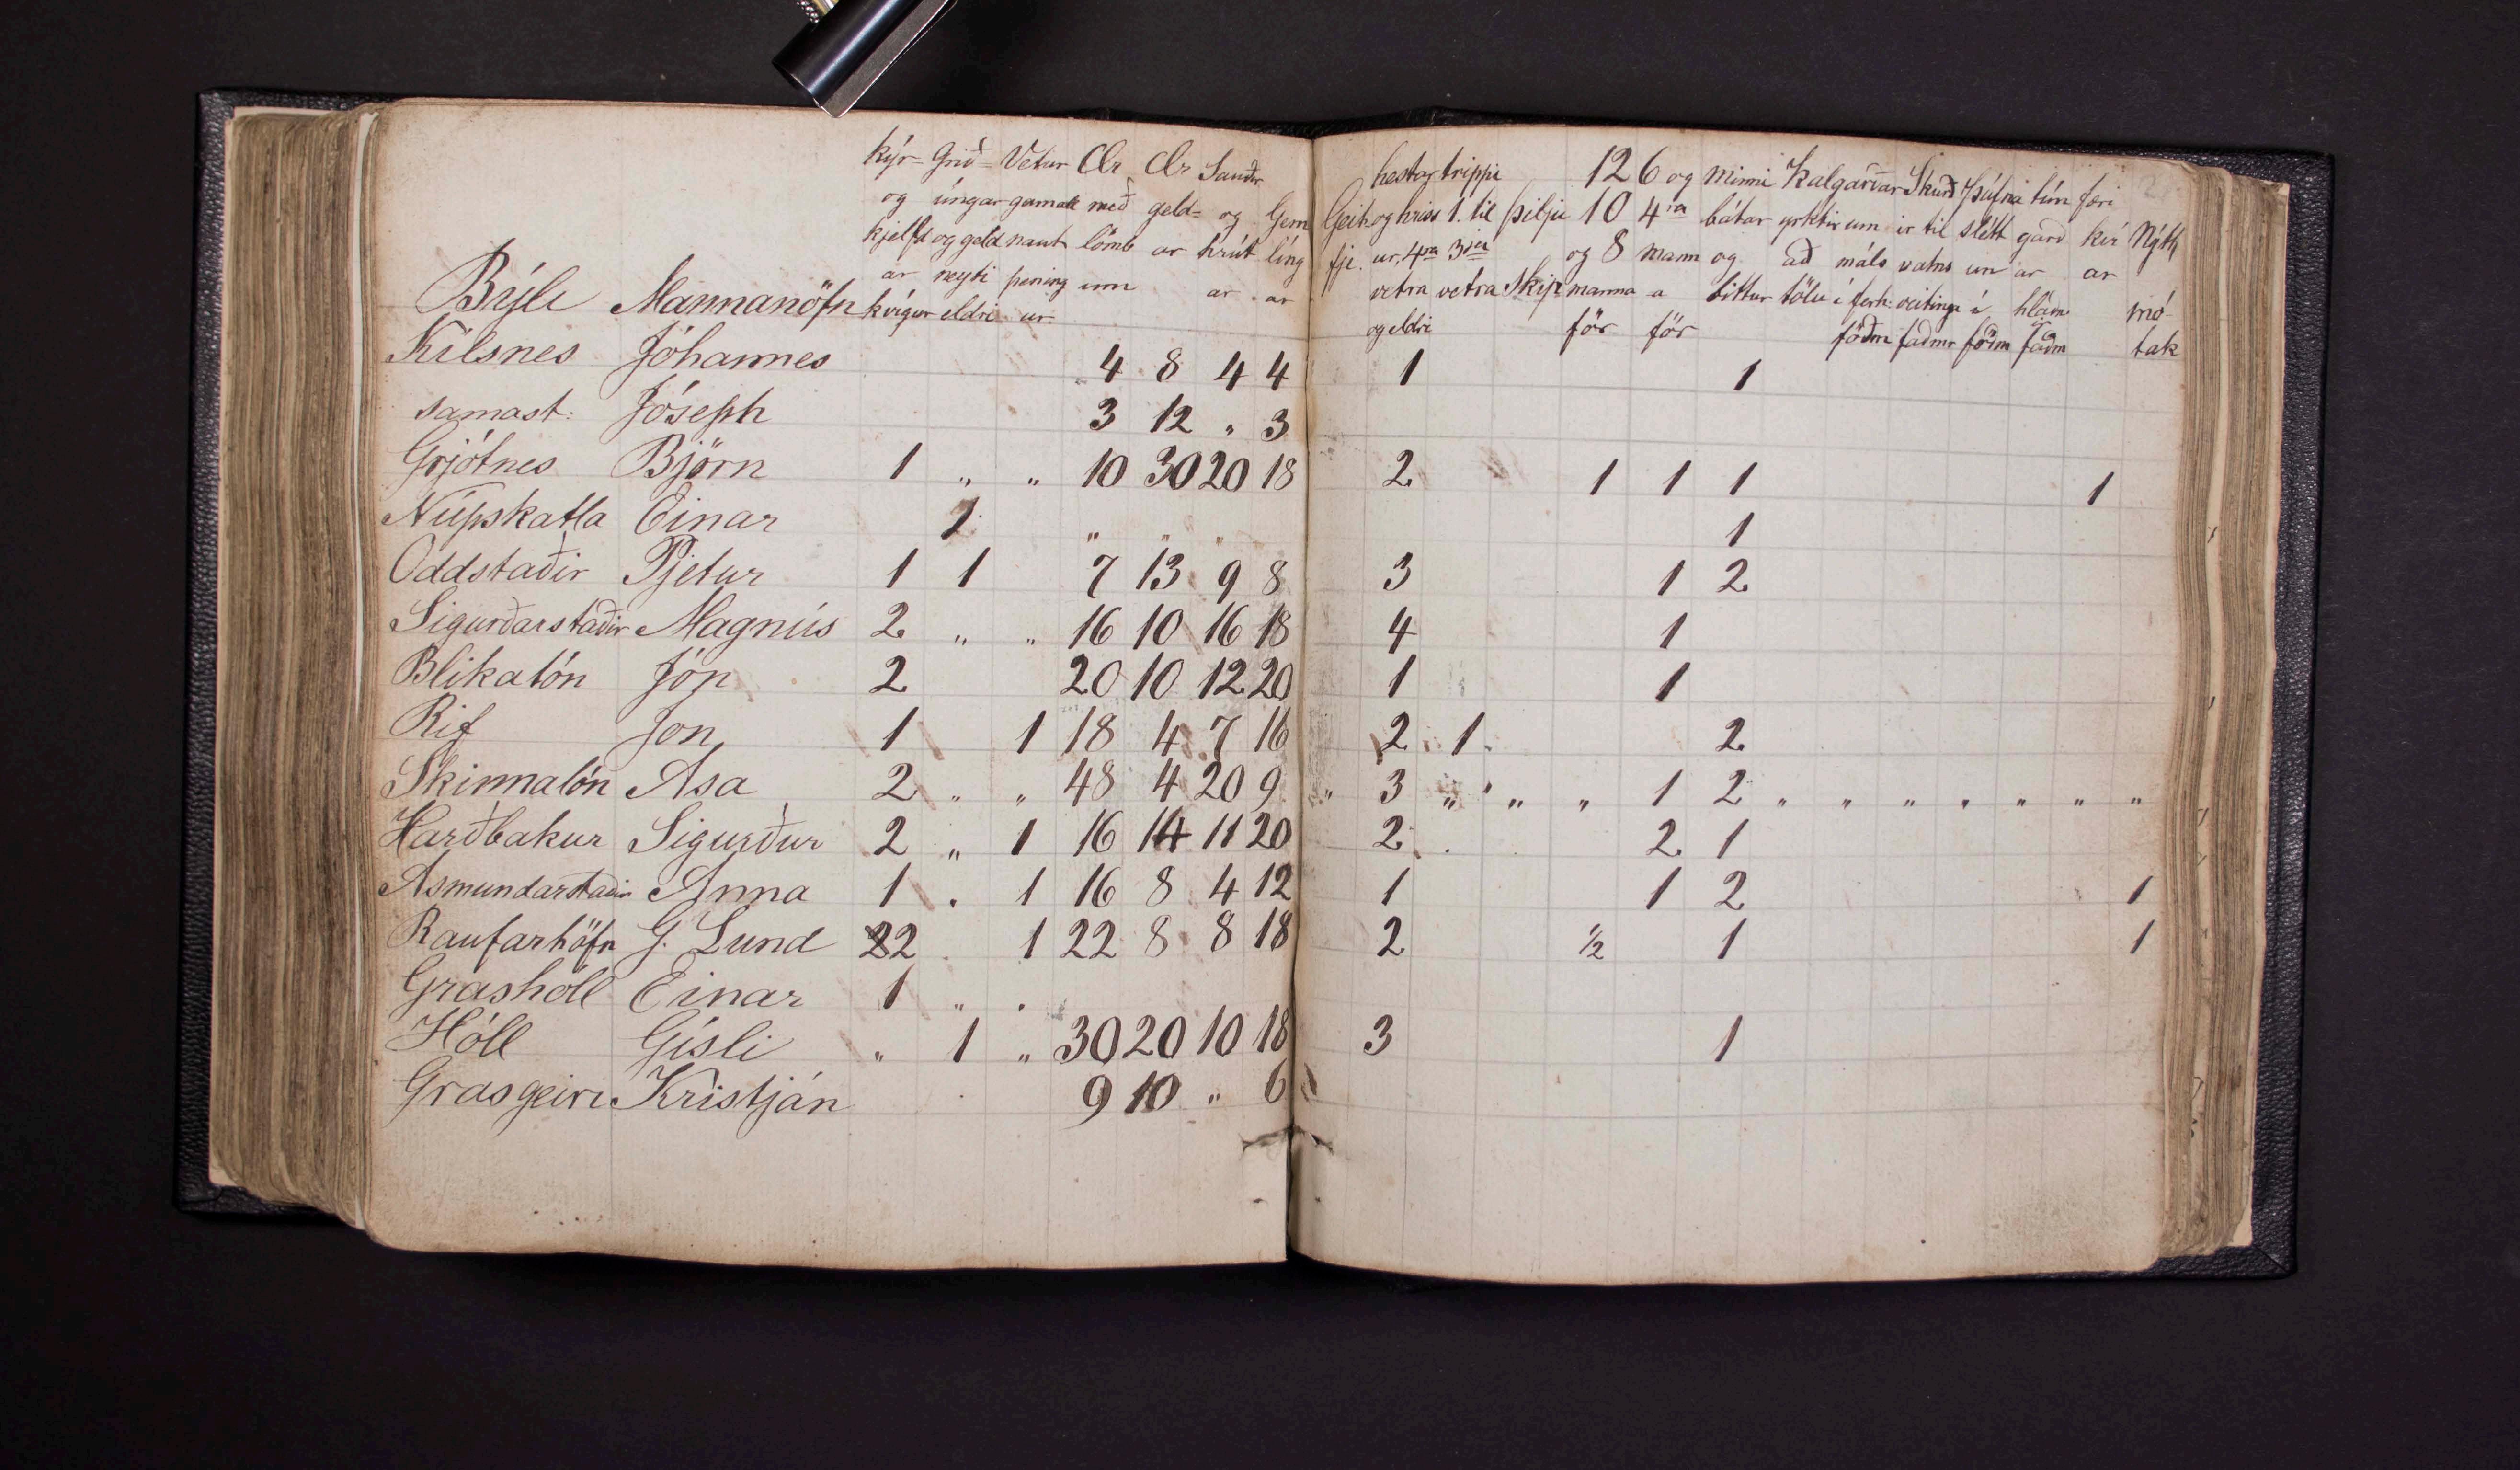 kýr- Grið- Vetur Ær Ær Sauðir
og úngar gamalt með geld- og Gem
kjelfd og geld naut lömb ar hrút líng
ar neyti pening um ar ar
Býli Mannanöfn kvígur eldri ur
Kílsnes Jóhannes 4 8 4 4
samast: Jóseph 3 12 „ 3
Grjótnes Björn 1 „ „ 10 30 20 18
Núpskatla Einar 1 „ „ „
Oddstaðir Pjetur 1 1 7 13 9 8
Sigurðarstaðir Magnús 2 „ „ 16 10 16 18
Blikalón Jón 2 20 10 12 20
Rif Jon 1 1 18 4 7 16
Skinnalón Asa 2 „ „ 48 4 20 9
Harðbakur Sigurður 2 „ 1 16 14 11 20
Asmundarstaðir Anna 1 . 1 16 8 4 12
Raufarhöfn G. Lund 2 1 22 8 8 18
Grashóll Einar 1 „ .
Hóll Gísli „ 1 „ 30 20 10 18
Grasgeiri Kristján 9 10 „ 6
hestar trippi 12 6 og minni Kalgarðar Skurð Þúfna tún færi 2
Geit og hriss 1. til þilju 10 4ra bátar yrktir um ir til slétt garð kví Nýtt
fje. ur, 4ra 3ja og 8 mann og að máls vatns un ar ar
vetra vetra Skip manna a tittur tölu í ferh: veitinga í hlaðn mó-
og eldri för för föðm faðmr föðm faðm tak
1 1
2 1 1 1 1
1
3 1 2
4 1
1 1
2 1 2
„ 3 „ „ „ „ 1 2 „ „ „ „ „ „ „
2 . 2 1
1 1 2 1
2 ½ 1 1
3 1